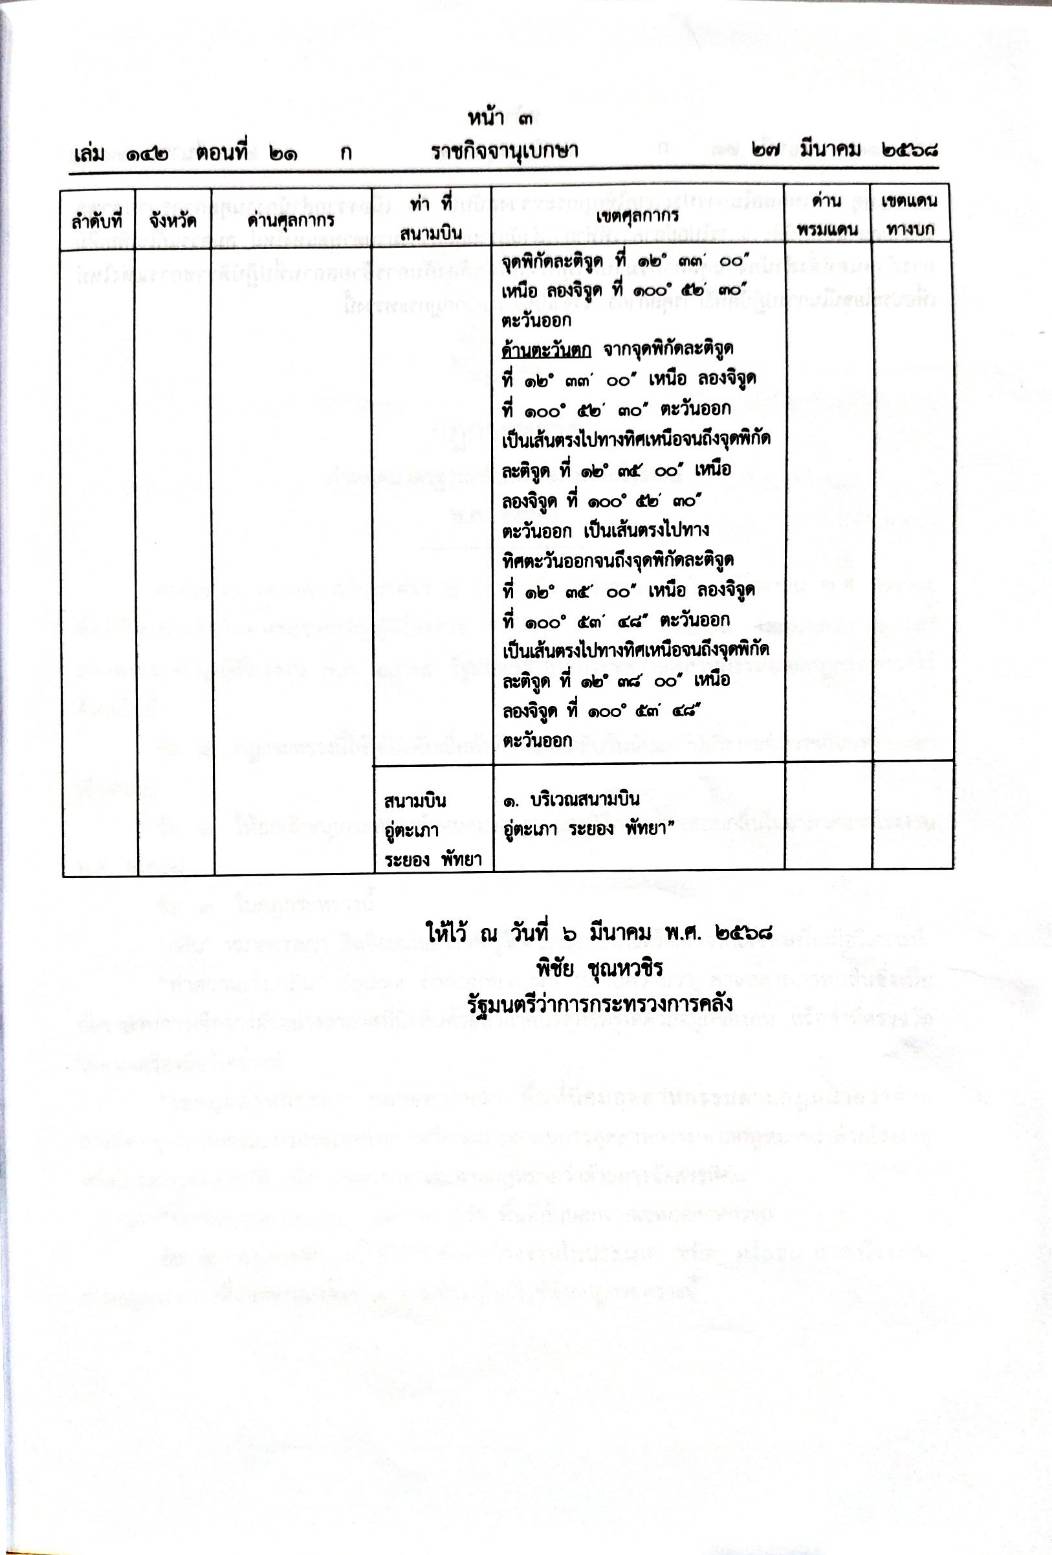 หน้า ๓
เล่ม ๑๔๒ ตอนที่ ๒๑ ก ราชกิจจานุเบกษา ๒๗ มีนาคม ๒๕๖๘
ลำดับที่ จังหวัด ด่านศุลกากร ท่า ที่ สนามบิน เขตศุลกากร ด่าน พรมแดน เขตแดน ทางบก
จุดพิกัดละติจูด ที่ ๑๒° ๓๓′ ๐๐″
เหนือ ลองจิจูด ที่ ๑๐๐° ๕๒′ ๓๐″
ตะวันออก
ด้านตะวันตก จากจุดพิกัดละติจูด
ที่ ๑๒° ๓๓′ ๐๐″ เหนือ ลองจิจูด
ที่ ๑๐๐° ๕๒′ ๓๐″ ตะวันออก
เป็นเส้นตรงไปทางทิศเหนือจนถึงจุดพิกัด
ละติจูด ที่ ๑๒° ๓๕′ ๐๐″ เหนือ
ลองจิจูด ที่ ๑๐๐° ๕๒′ ๓๐″
ตะวันออก เป็นเส้นตรงไปทาง
ทิศตะวันออกจนถึงจุดพิกัดละติจูด
ที่ ๑๒° ๓๕′ ๐๐″ เหนือ ลองจิจูด
ที่ ๑๐๐° ๕๓′ ๔๘″ ตะวันออก
เป็นเส้นตรงไปทางทิศเหนือจนถึงจุดพิกัด
ละติจูด ที่ ๑๒° ๓๘′ ๐๐″ เหนือ
ลองจิจูด ที่ ๑๐๐° ๕๓′ ๔๘″
ตะวันออก
สนามบิน ๑. บริเวณสนามบิน
อู่ตะเภา อู่ตะเภา ระยอง พัทยา”
ระยอง พัทยา
ให้ไว้ ณ วันที่ ๖ มีนาคม พ.ศ. ๒๕๖๘
พิชัย ชุณหวชิร
รัฐมนตรีว่าการกระทรวงการคลัง